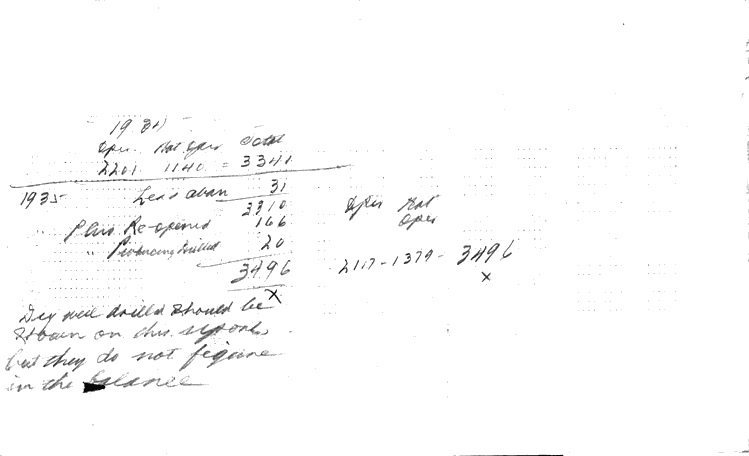 1934
Oper. Not Oper Total
2201 1140 = 3341
1935 Less aban 31
3310
" Plus Re-opened 166
" Producing drilled 20
3496
x
Oper Not
Oper
2117 - 1379 - 3496
x
Dry well drilld should be
shown on this report
but they do not figure
in the balance